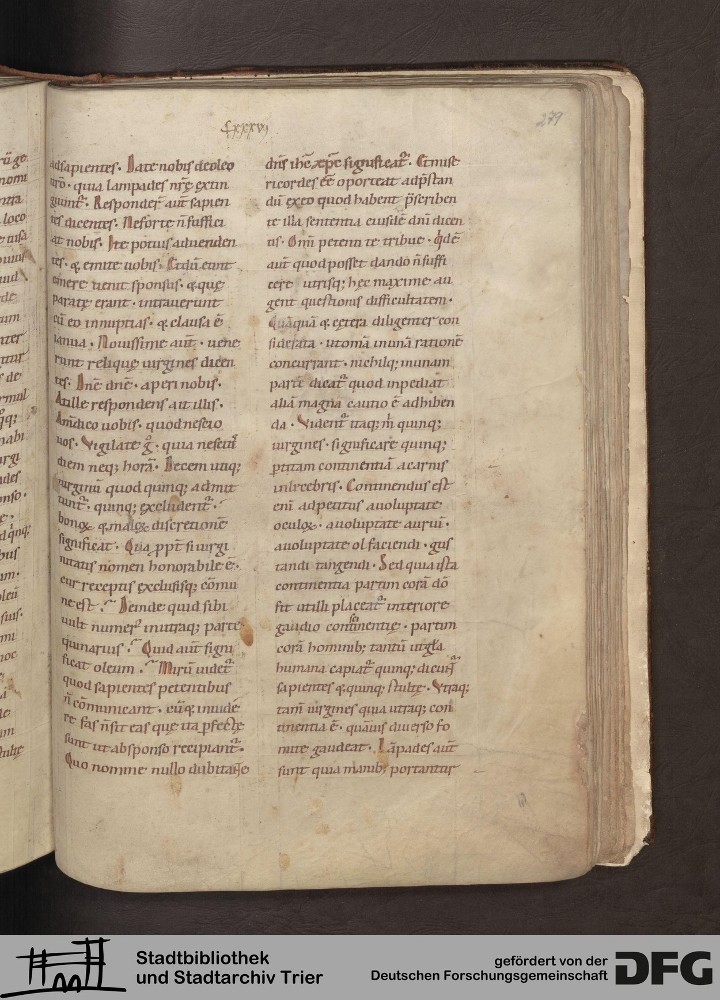 Cxxxvi
279
adsapientes. Date nobis deoleo
uro. quia lampades nrę extin
guunt. Responder aut sapien
tes dicentes. Neforte n suffici
at nobis. Ite potius aduenden
tes. & emite uobis. Etdu eunt
emere uenit sponsus. & quę
paratę erant. intrauerunt
cu eo innuptias. & clausa ē
ianua. Nouissime aut. uene
runt reliquę uirgines dicen
tes. Dnē dnē. aperi nobis.
Atille respondens ait illis.
Amdico uobis. quod nescio
uos. Vigilate g. quia nescitis
diem neq; horā. Decem utiq;
uirginū quod quinq; admit
tunt. quinq; excludent.
bonoꝝ & maloꝝ discretionē
significat. Qua ppt si uirgi
nitatis nomen honorabile ē.
cur receptis exclusisq; cōmu
ne est. Deinde quid sibi
uult numer inutraq; parte
quinarius. Quid aut signi
ficat oleum. Mirū uidet
quod sapientes petentibus
n cōmunicant. inuide
re fas nsit eas quę ita pfectę
sunt ut absponso recipiant.
Quo nomine nullo dubitante
dns ihē xpē significat. Et mise
ricordes ēē oporteat adpstan
dū exeo quod habent pscriben
te illa sententia eiusdē dnī dicen
tis. Omi petenti te tribue. qdē
aut quod posset dando n suffi
cere utrisq; hęc maxime au
gent questionis difficultatem.
Quāquā & cętera diligenter con
siderata. utomīa inunā rationē
concurrant. nichilq; inunam
parte dicat quod inpediat
aliā magna cautio ē adhiben
da. Vident itaq; m quinq;
uirgines. significare quinq;
ptitam continentiā acarnis
inlecebris. Continendus est
eni adpetitus auoluptate
oculoꝝ. auoluptate auriū.
auoluptate olfaciendi. gus
tandi tangendi. Sed quia ista
continentia partim corā dō
fit utilli placeat interiore
gaudio conscientię. partim
corā hominib; tantū
humana capiat quinq; dicunt
sapientes & quinq; stultę. Vtraq;
tam uirgines quia utraq; con
tinentia ē. quāuis diuerso fo
mite gaudeat. Lāpades aut
sunt quia manib; portantur
Stadtbibliothek
und Stadtarchiv Trier
gefördert von der
Deutschen Forschungsgemeinschaft
DFG